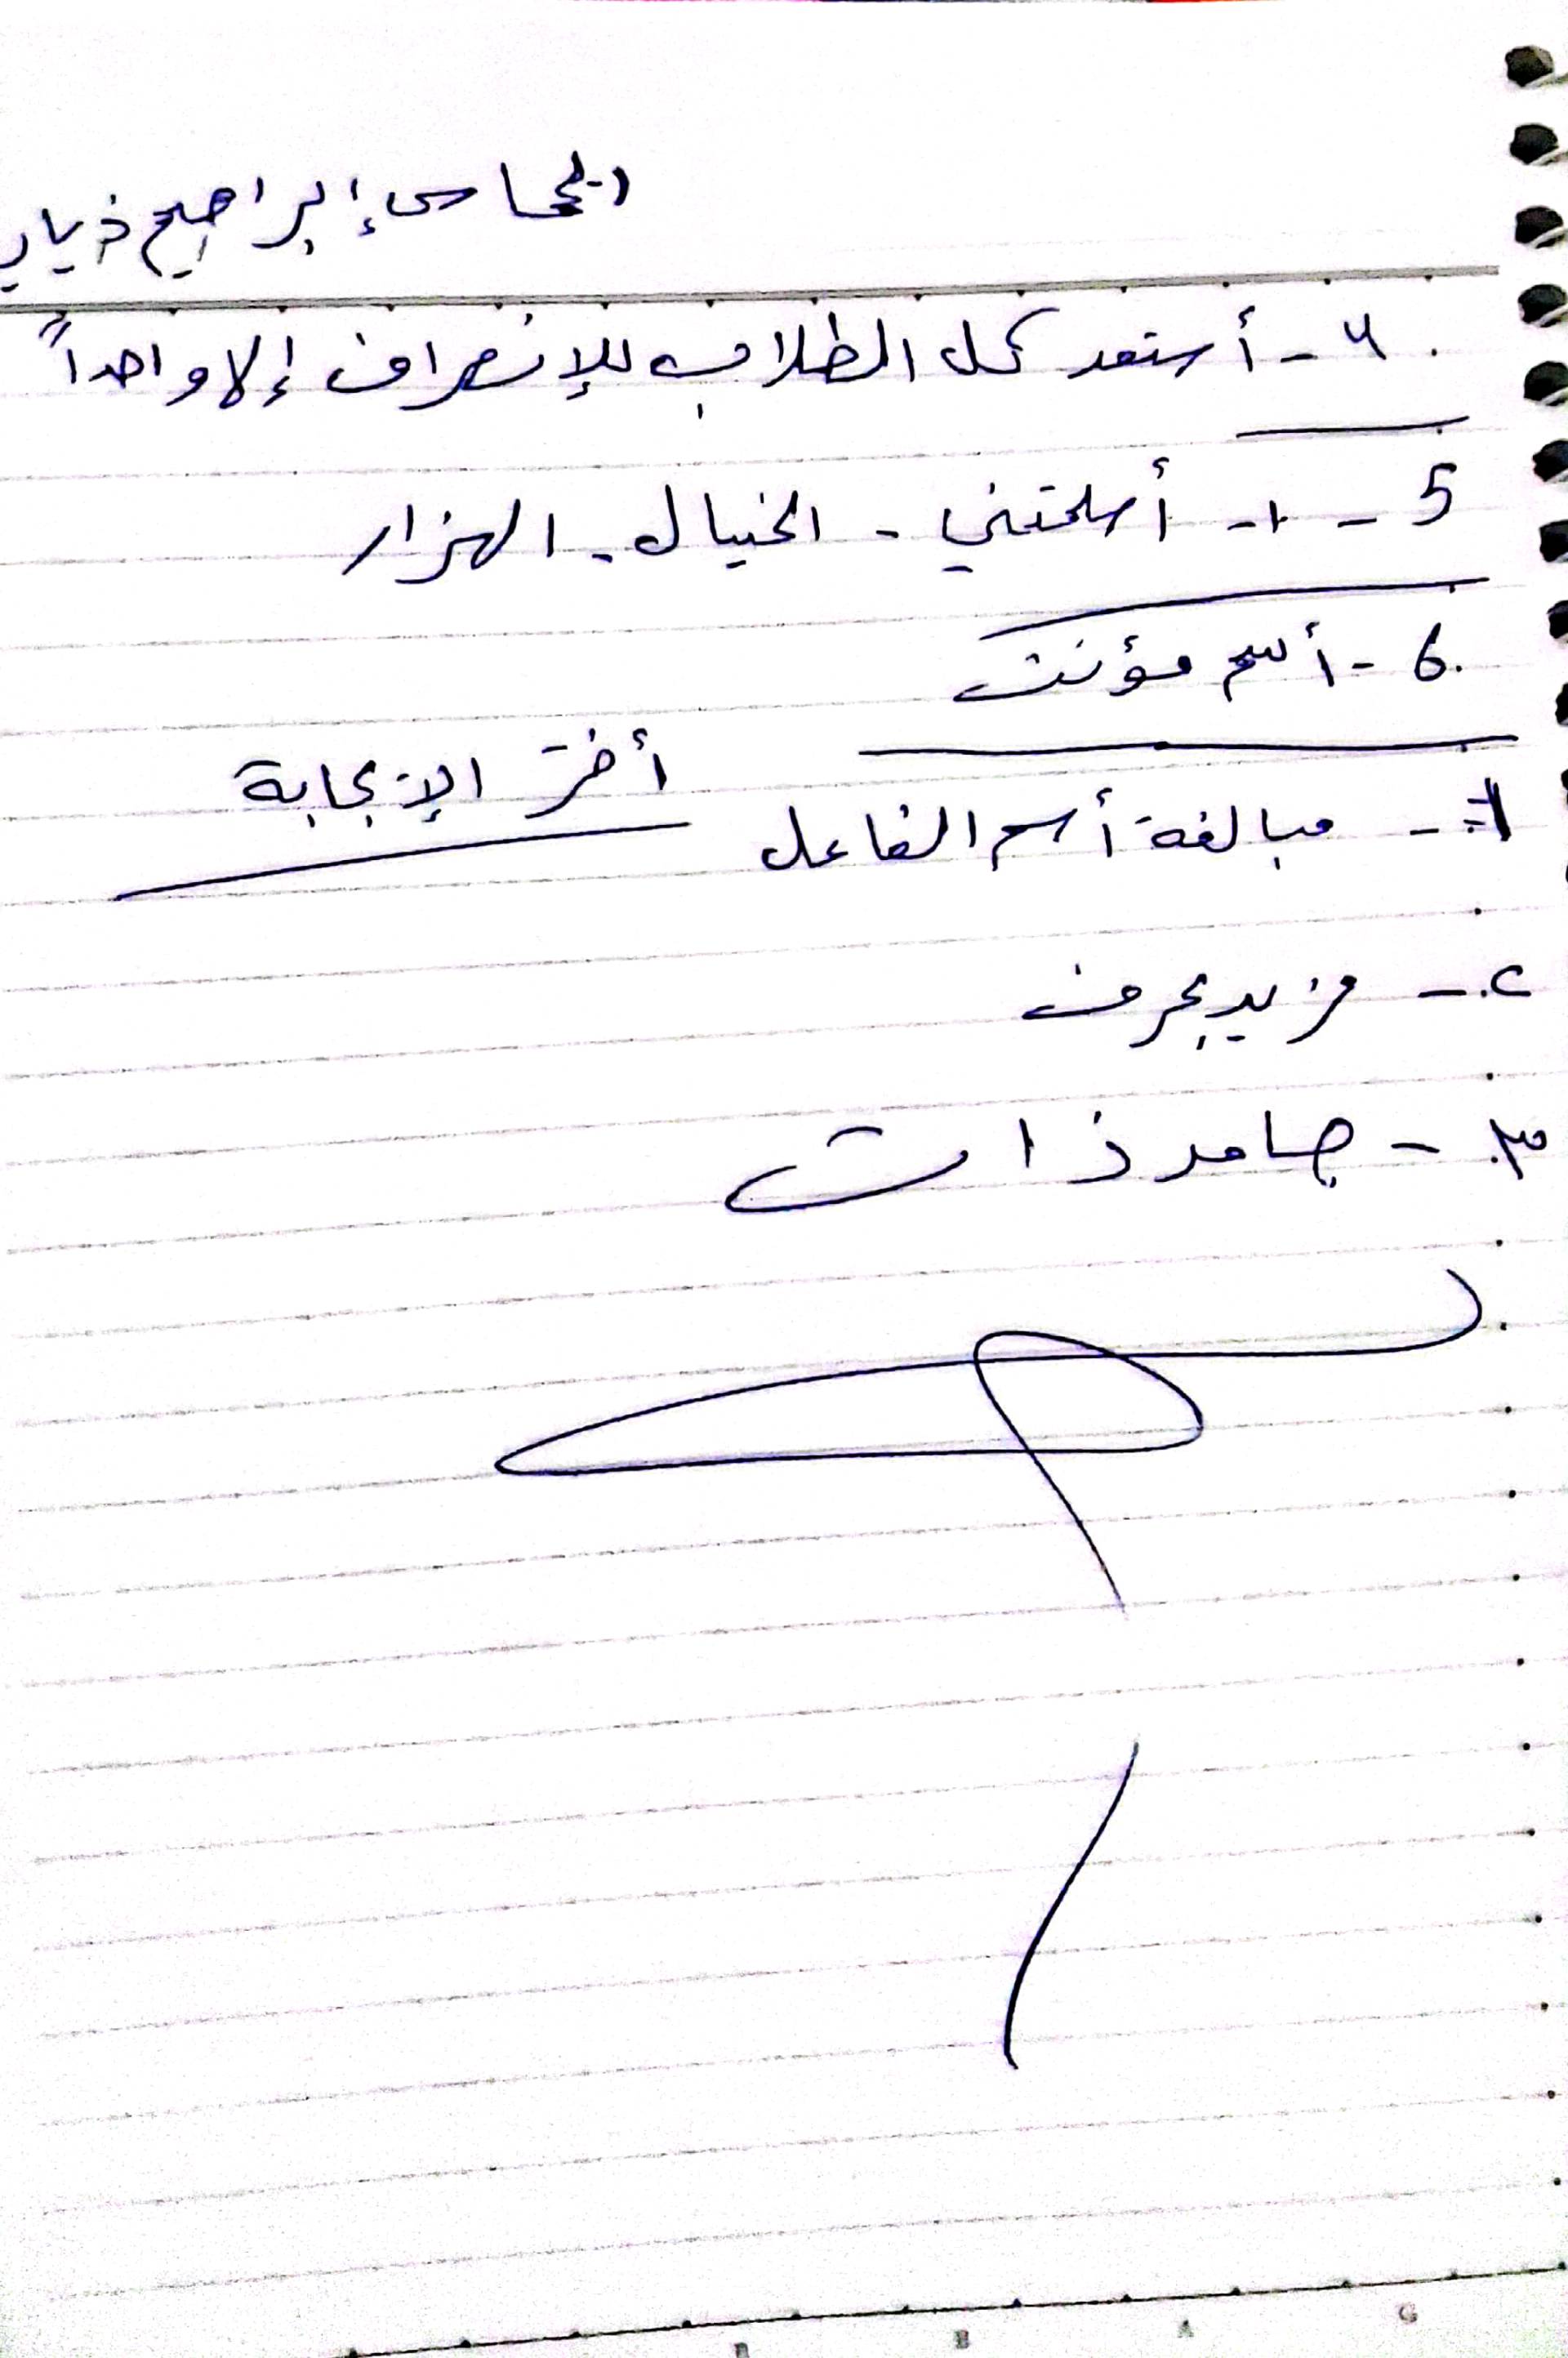 المحامي إبراهيم ذياب
٤ - أستعد كل الطلاب للإنصراف إلا واحداً
5 - ١- أسلمتني - الخيال - الهزار
6 - أسم مؤنث
أختر الإجابة
١ - مبالغة أسم الفاعل
٢ - مزيد بحرف
٣ - جامد ذات